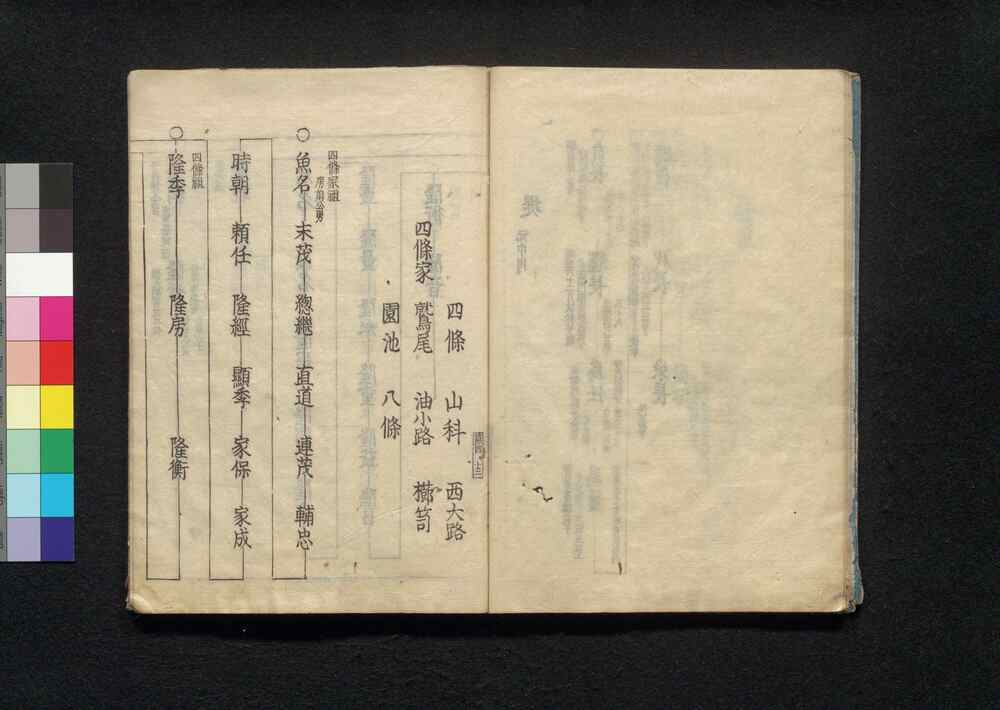 四條　山科　西大路
四條家　鷲尾　油小路　櫛笥
園池　八條
四條家祖
房前公男
魚名　末茂　總繼　直道　連茂　輔忠
時朝　頼任　隆經　顯季　家保　家成
四條祖
隆季　隆房　隆衡